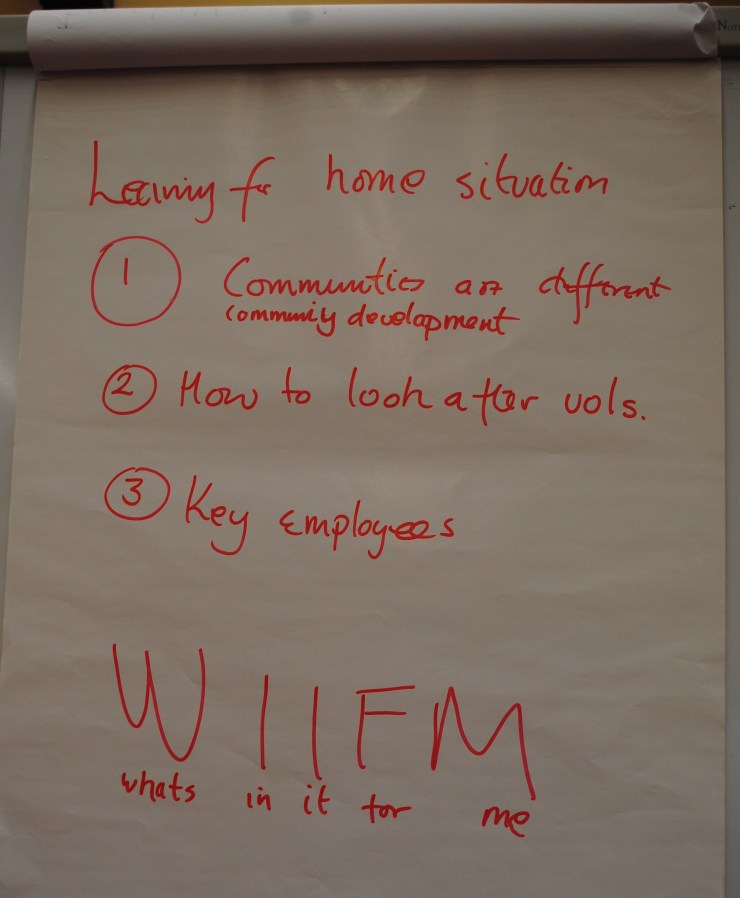 Learning for home situation
1 Communties are different
community development
2 How to look after vols.
3 Key employees
WIIFM
whats in it for me